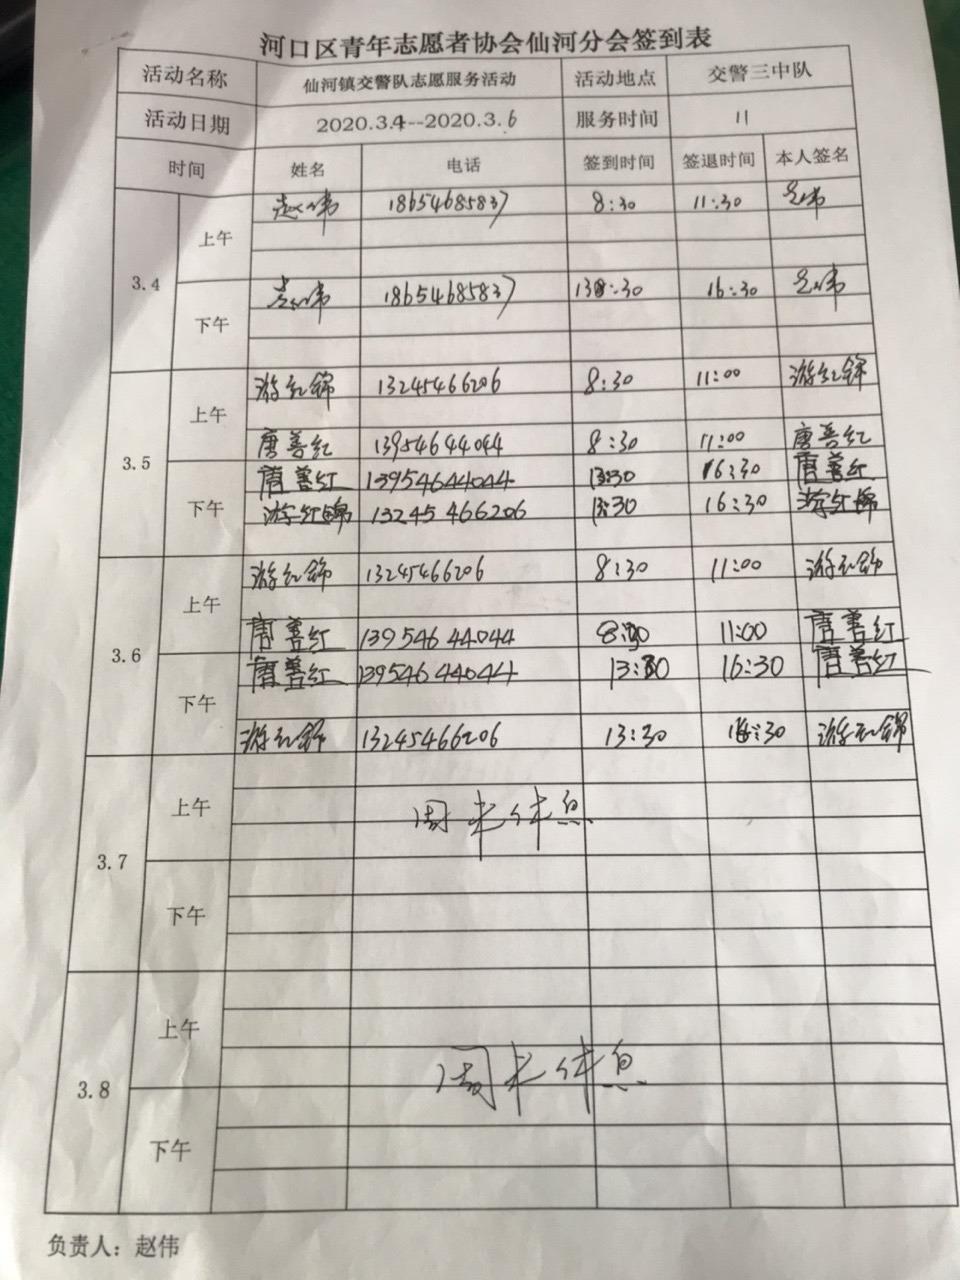 河口区青年志愿者协会仙河分会签到表
活动名称 仙河镇交警队志愿服务活动 活动地点 交警三中队
活动日期 2020.3.4--2020.3.6 服务时间 11
时间 姓名 电话 签到时间 签退时间 本人签名
3.4 上午 赵伟 18654685837 8:30 11:30 赵伟
下午 赵伟 18654685837 13:30 16:30 赵伟
3.5 上午 游红锦 13245466206 8:30 11:00 游红锦
唐善红 13954644044 8:30 11:00 唐善红
下午 唐善红 13954644044 13:30 16:30 唐善红
游红锦 13245466206 13:30 16:30 游红锦
3.6 上午 游红锦 13245466206 8:30 11:00 游红锦
唐善红 13954644044 8:30 11:00 唐善红
下午 唐善红 13954644044 13:30 16:30 唐善红
游红锦 13245466206 13:30 16:30 游红锦
3.7 上午 周末休息
下午
3.8 上午 周末休息
下午
负责人：赵伟